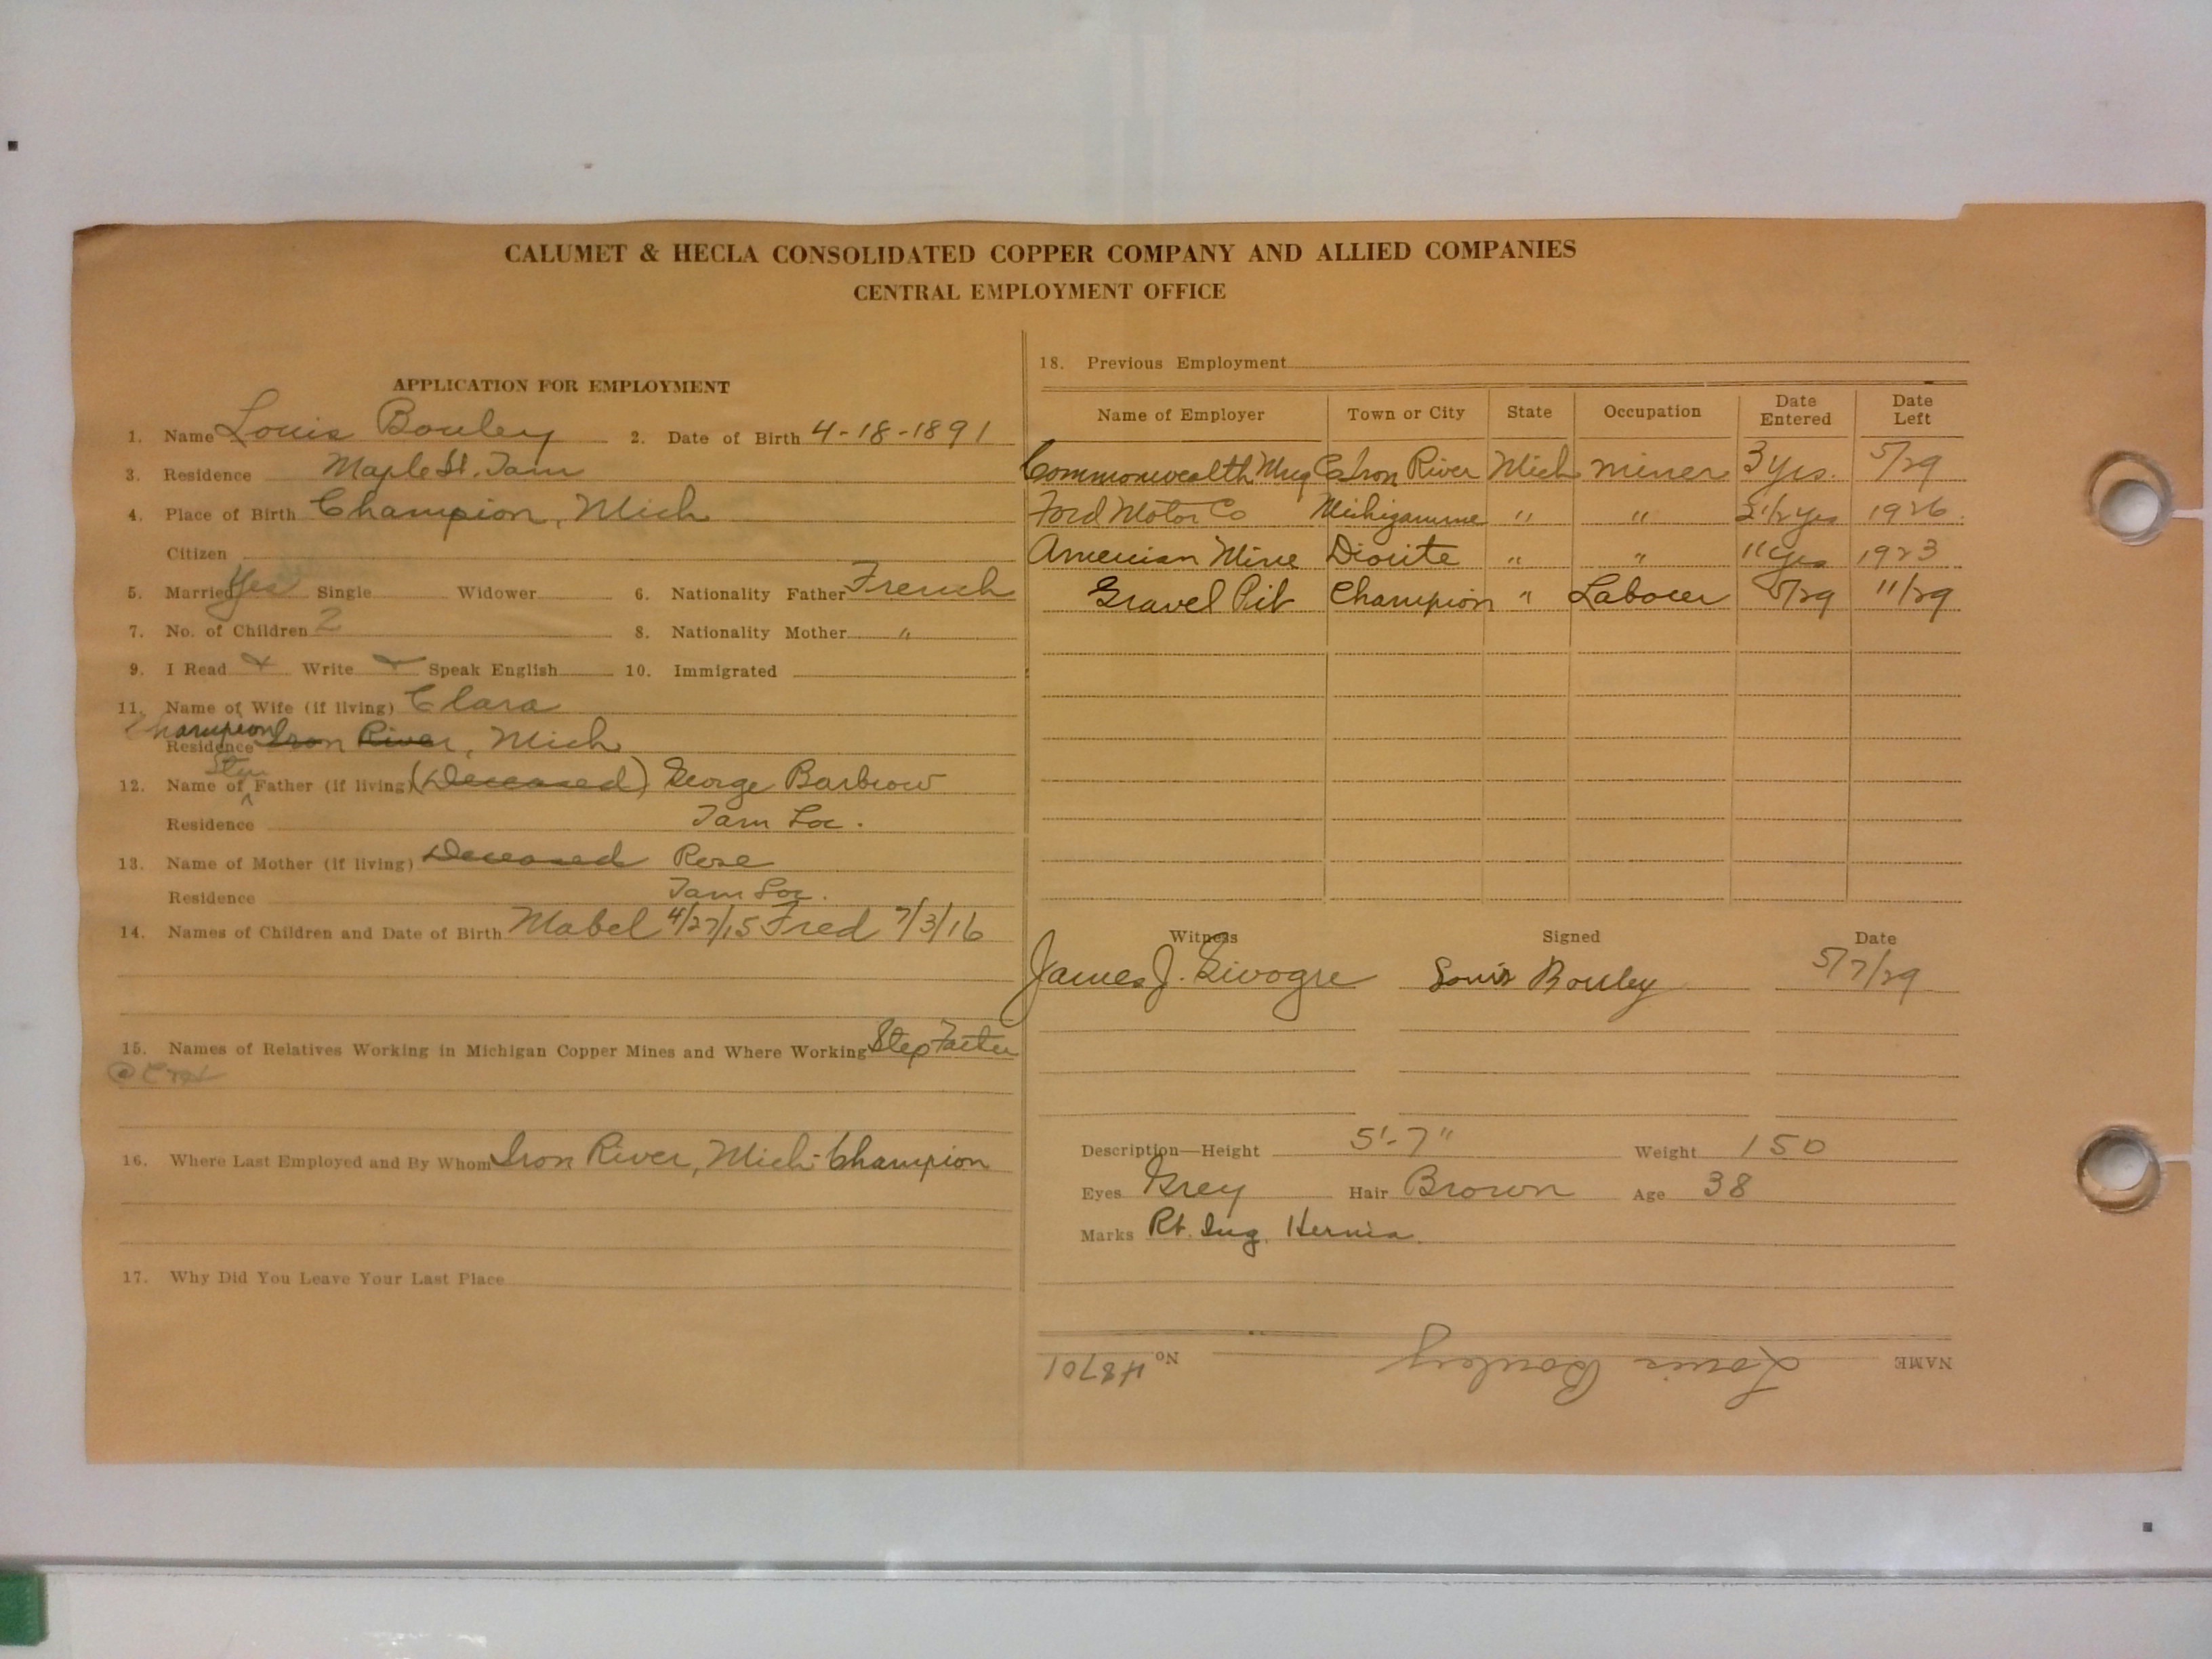 CALUMET & HECLA CONSOLIDATED COPPER COMPANY AND ALLIED COMPANIES
CENTRAL EMPLOYMENT OFFICE
APPLICATION FOR EMPLOYMENT
1. Name Louis Bouley 2. Date of Birth 4-18-1891
3. Residence Maple St. Tam
4. Place of Birth Champion, Mich
Citizen
5. Married Yes Single Widower 6. Nationality Father French
7. No. of Children 2 8. Nationality Mother "
9. I Read Write Speak English 10. Immigrated
11. Name of Wife (if living) Clara
Champion
Residence Iron River, Mich
Step
12. Name of Father (if living) (Deceased) George
Residence Tam Loc.
13. Name of Mother (if living) Deceased Rose
Residence Tam Loc.
14. Names of Children and Date of Birth Mabel 4/27/15 Fred 7/3/16
15. Names of Relatives Working in Michigan Copper Mines and Where Working Step Father
16. Where Last Employed and By Whom Iron River, Mich - Champion
17. Why Did You Leave Your Last Place
18. Previous Employment
Name of Employer Town or City State Occupation Date Entered Date Left
Commonwealth Mng Co Iron River Mich miner 3 yrs. 5/29
Ford Motor Co Michigamme " " 1926
American Mine Diorite " " 11 yrs 1923
Gravel Pit Champion " Laborer 5/29 11/29
Witness Signed Date
James J. Louis Bouley 5/7/29
Description—Height 5'-7" Weight 150
Eyes Grey Hair Brown Age 38
Marks Rt. Ing. Hernia
NAME Louis Bouley No. H8701